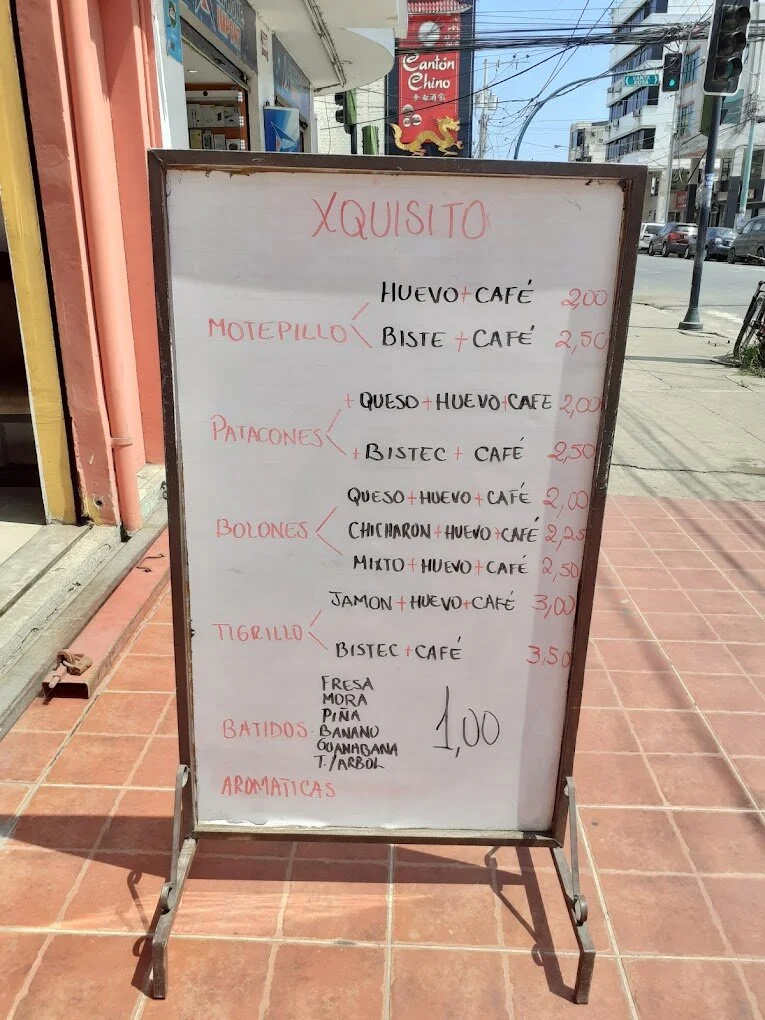 Cantón
Chino
SANTA
ROSA
XQUISITO
HUEVO + CAFÉ 2,00
MOTEPILLO
BISTE + CAFÉ 2,50
+ QUESO + HUEVO + CAFE 2,00
PATACONES
+ BISTEC + CAFÉ 2,50
QUESO + HUEVO + CAFÉ 2,00
BOLONES CHICHARON + HUEVO + CAFÉ 2,25
MIXTO + HUEVO + CAFÉ 2,50
JAMON + HUEVO + CAFÉ 3,00
TIGRILLO
BISTEC + CAFÉ 3,50
FRESA
MORA
PIÑA
BATIDOS BANANO 1,00
GUANABANA
T./ARBOL
AROMATICAS